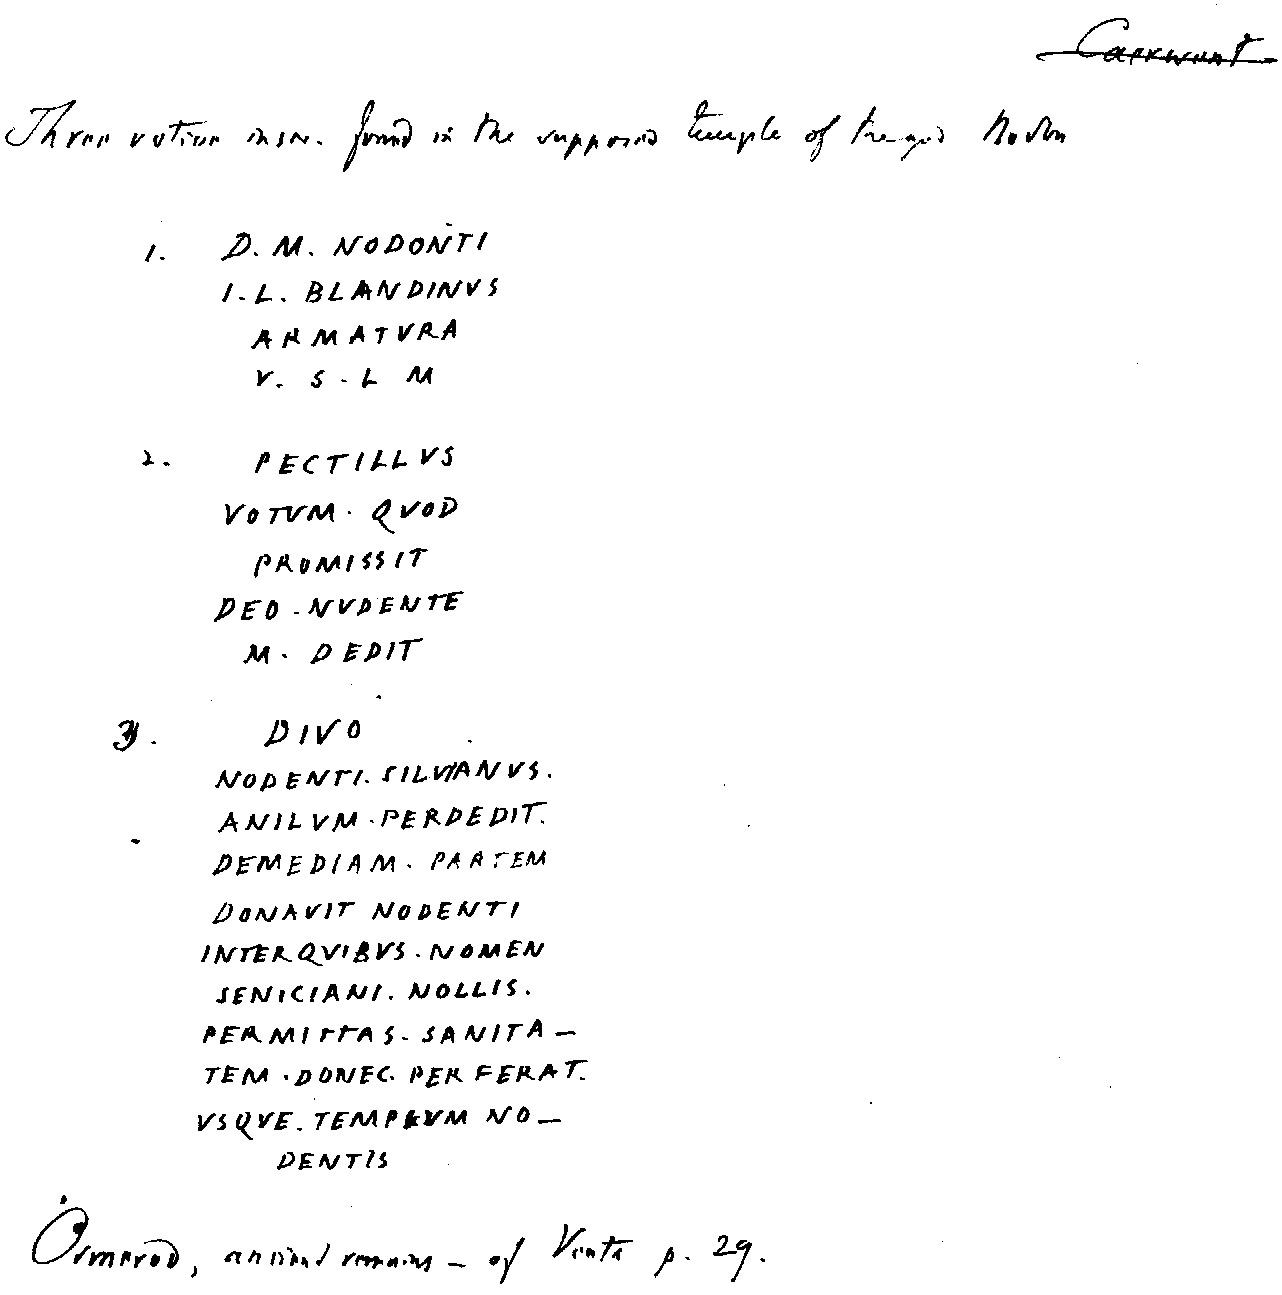 Caerwent
Three votive inscr. found in the supposed temple of the god Nodon
1. D. M. NODONTI
I. L. BLANDINVS
ARMATVRA
V. S. L M
2. PECTILLVS
VOTVM. QVOD
PROMISSIT
DEO. NVDENTE
M. DEDIT
3. DIVO
NODENTI. SILVIANVS.
ANILVM. PERDEDIT.
DEMEDIAM. PARTEM
DONAVIT NODENTI
INTERQVIBVS. NOMEN
SENICIANI. NOLLIS.
PERMITTAS. SANITA-
TEM. DONEC. PERFERAT.
VSQVE. TEMPLVM NO-
DENTIS
Ormerod, ancient remains - of Venta p. 29.